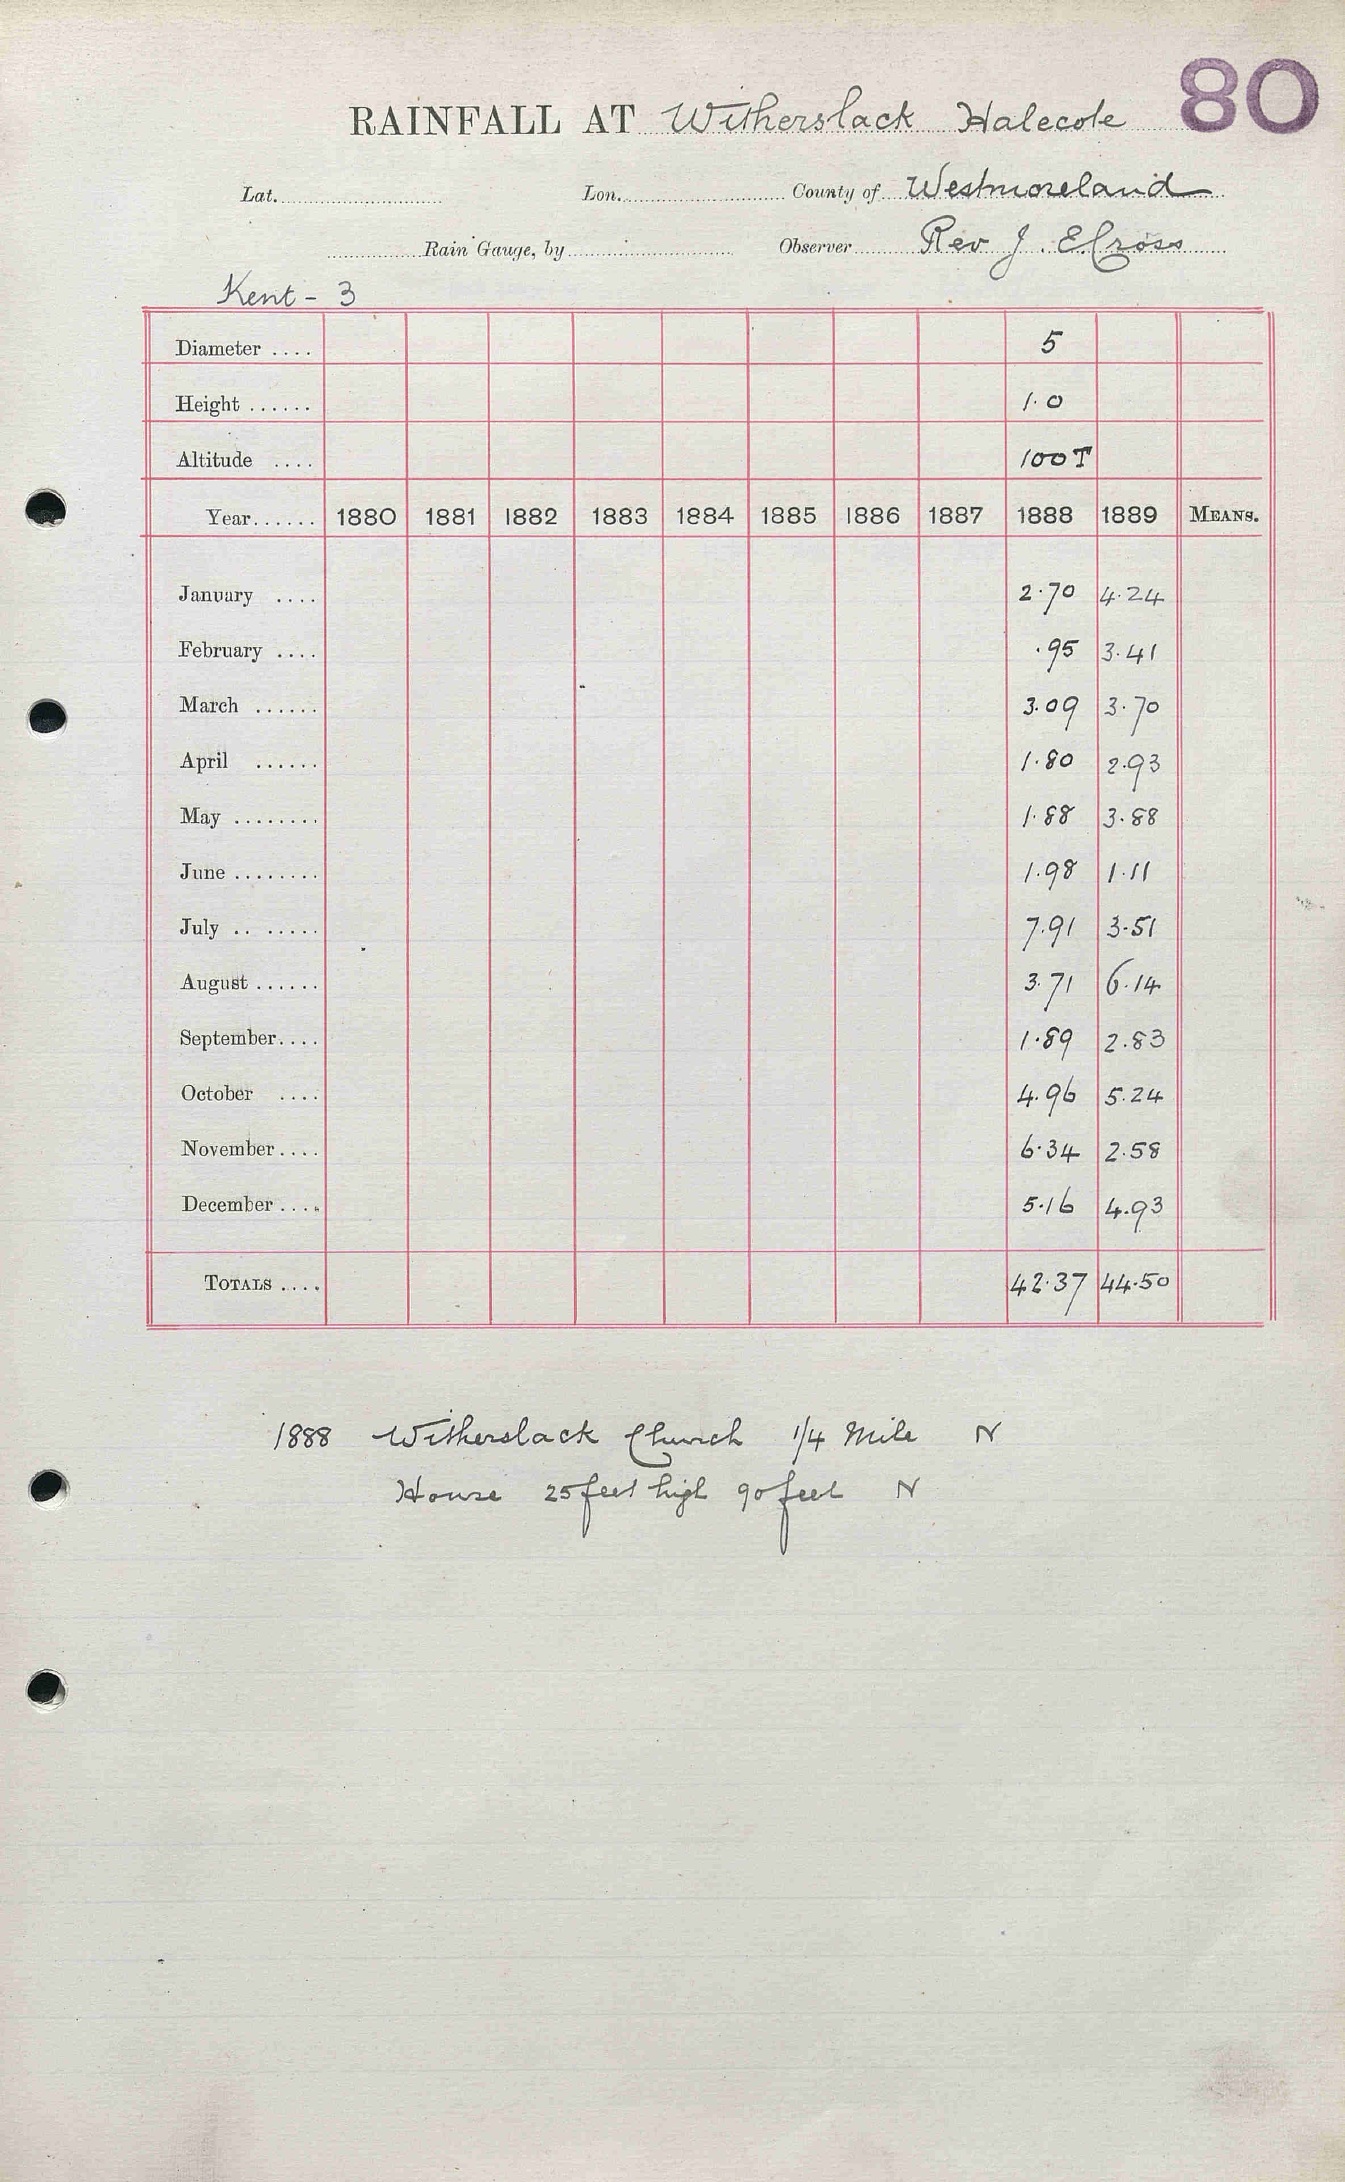 RAINFALL AT Witherslack Halecote 80
Lat. Lon. County of Westmoreland
Rain Gauge, by Observer Rev J. E Cross
Kent - 3
Diameter .... 5
Height ...... 1.0
Altitude .... 100 T
Year...... 1880 1881 1882 1883 1884 1885 1886 1887 1888 1889 MEANS.
January .... 2.70 4.24
February .... .95 3.41
March ...... 3.09 3.70
April ...... 1.80 2.93
May ........ 1.88 3.88
June ........ 1.98 1.11
July .. ..... 7.91 3.51
August ...... 3.71 6.14
September.... 1.89 2.83
October .... 4.96 5.24
November.... 6.34 2.58
December .... 5.16 4.93
TOTALS .... 42.37 44.50
1888 Witherslack Church 1/4 Mile N
House 25 feet high 90 feet N